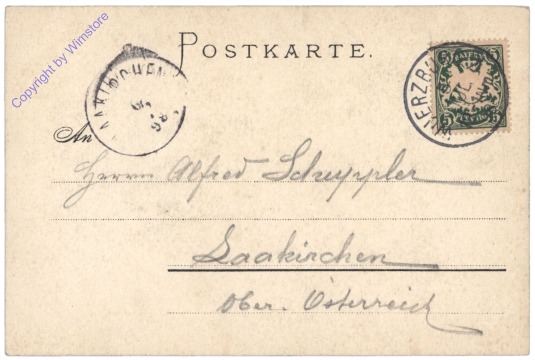 Copyright by Wimstore
POSTKARTE.
LAAKIRCHEN
98
WUERZBU
BAYERN
5 5
An
Herrn Alfred Schuppler
Laakirchen
Ober. Österreich